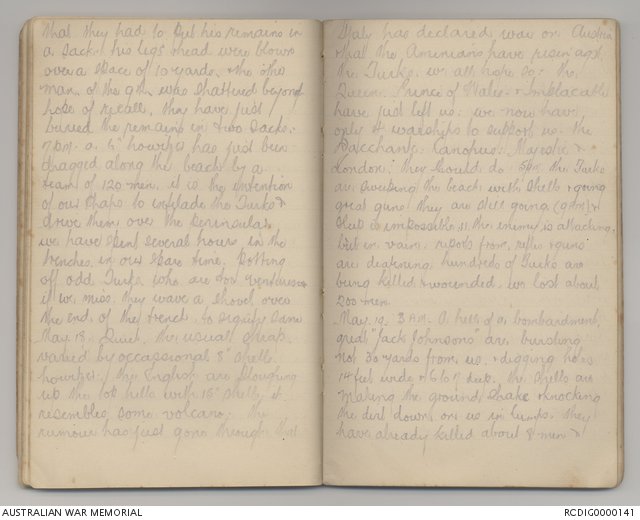 that they had to put his remains in
a sack. his legs & head were blown
over a space of 10 yards. & the other
man of the 9th was shattered beyond
hope of recall, they have just
buried the remains in two sacks.
7 P.M. a 6" howitzer has just been
dragged along the beach by a
team of 120 men. it is the intention
of our chaps to enfilade the Turks &
drive them over the Peninsular
we have spent several hours in the
trenches in our spare time. Potting
off odd Turks who are too venturesome
if we miss they wave a shovel over
the end of the trench to signify same
May. 18. Quiet. the usual shrap.
varied by occassional 8" shells
howitzer. the English are ploughing
up the top hills with 15" shells it
resembles some volcano. the
rumour has just gone through that
Italy has declared war on Austria
& that the Armenians have risen agst
the Turks. we all hope so. the
Queen. Prince of Wales. & Implacable
have just left us. we now have
only 4 warships to support us. the
Bacchante. Canopus. Majestic &
London. they should do. 5 P.M. the Turks
are sweeping the beach with shells & going
great guns they are still going (9 P.M.) &
sleep is impossible. 11. the enemy is attacking
but in vain. reports from rifles & guns
are deafening. hundreds of Turks are
being killed & wounded. we lost about
200 men.
May. 19. 3 A.M. A hell of a bombardment,
great "Jack Johnsons are bursting
not 30 yards from us. & digging holes
14 feet wide & 6 to 7 deep. the shells are
making the ground shake & knocking
the dirt down on us in lumps. they
have already killed about 8 men &
AUSTRALIAN WAR MEMORIAL
RCDIG0000141